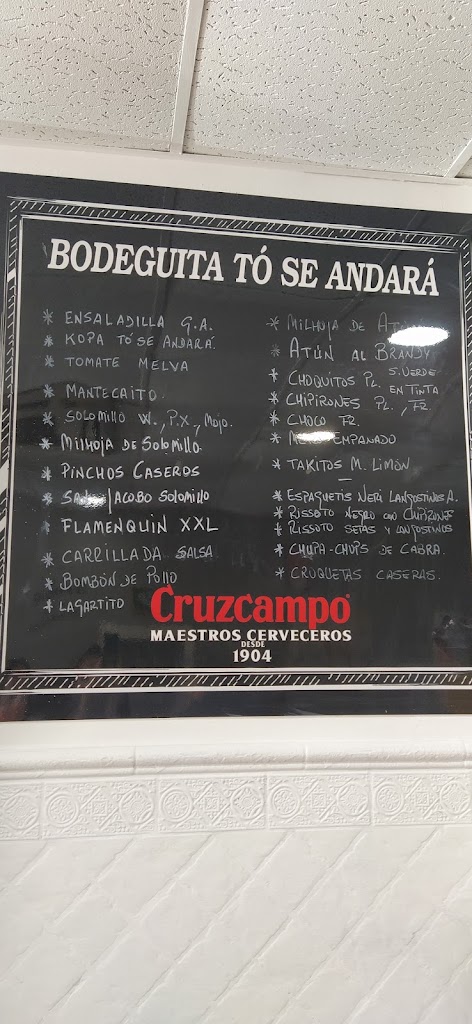 BODEGUITA TÓ SE ANDARÁ
* ENSALADILLA G.A.
* KOPA TÓ SE ANDARÁ
* TOMATE MELVA
* MANTECAITO.
* SOLOMILLO W., P.X., Mojo.
* MILHOJA DE SOLOMILLO.
* PINCHOS CASEROS
* JACOBO SOLOMILLO
* FLAMENQUIN XXL
* CARRILLADA SALSA
* BOMBÓN DE POLLO
* LAGARTITO
* MILHOJA DE
* ATÚN AL BRANDY
* CHOQUITOS PL. S. VERDE EN TINTA
* CHIPIRONES PL., FR.
* CHOCO FR.
* EMPANADO
* TAKITOS M. LIMÓN
* ESPAGUETIS NERI LANGOSTINOS A.
* RISSOTO NEGRO CON CHIPIRONES
* RISSOTO SETAS Y LANGOSTINOS
* CHUPA-CHOPS DE CABRA.
* CROQUETAS CASERAS.
Cruzcampo
MAESTROS CERVECEROS
DESDE
1904